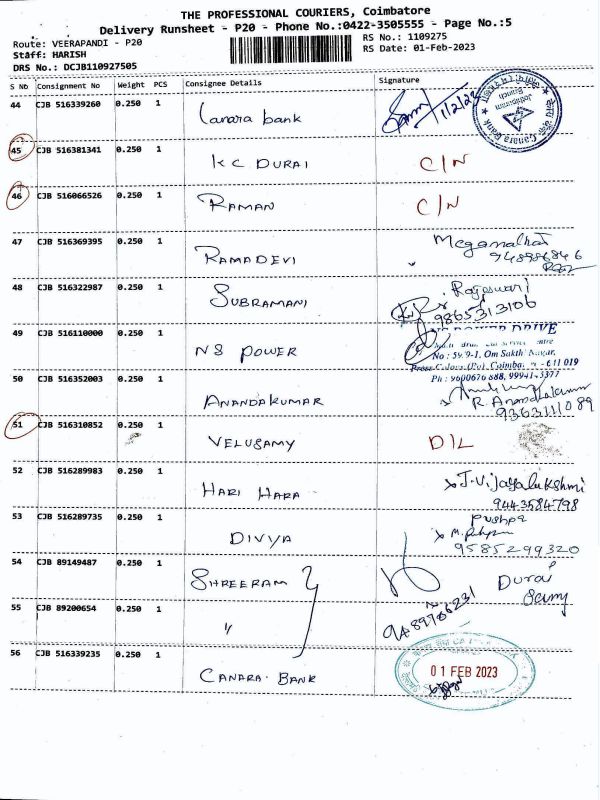 THE PROFESSIONAL COURIERS, Coimbatore
Delivery Runsheet - P20 - Phone No.:0422-3505555 - Page No.:5
Route: VEERAPANDI - P20 RS No.: 1109275
Staff: HARISH RS Date: 01-Feb-2023
DRS No.: DCJB110927505
S No Consignment No Weight PCS Consignee Details Signature
44 CJB 516339260 0.250 1 Canara bank 1/2/23 Canara Bank
45 CJB 516381341 0.250 1 KC DURAI C/N
46 CJB 516066526 0.250 1 RAMAN C/N
47 CJB 516369395 0.250 1 RAMADEVI
48 CJB 516322987 0.250 1 SUBRAMANI Rajeswari
9865313106
49 CJB 516110000 0.250 1 NS POWER
No : 59, 9-1, Om Sakthi Nagar,
Press Colony (Po), Coimba - 611 019
50 CJB 516352003 0.250 1 ANANDAKUMAR R. Anandakumar
9363111089
51 CJB 516310852 0.250 1 VELUSAMY D/L
52 CJB 516289983 0.250 1 HARI HARA J. Vijayalakshmi
9443584798
53 CJB 516289735 0.250 1 DIVYA Pushpa
9585299320
54 CJB 89149487 0.250 1 SHREERAM Durai
Samy
55 CJB 89200654 0.250 1 "
56 CJB 516339235 0.250 1 CANARA BANK 01 FEB 2023